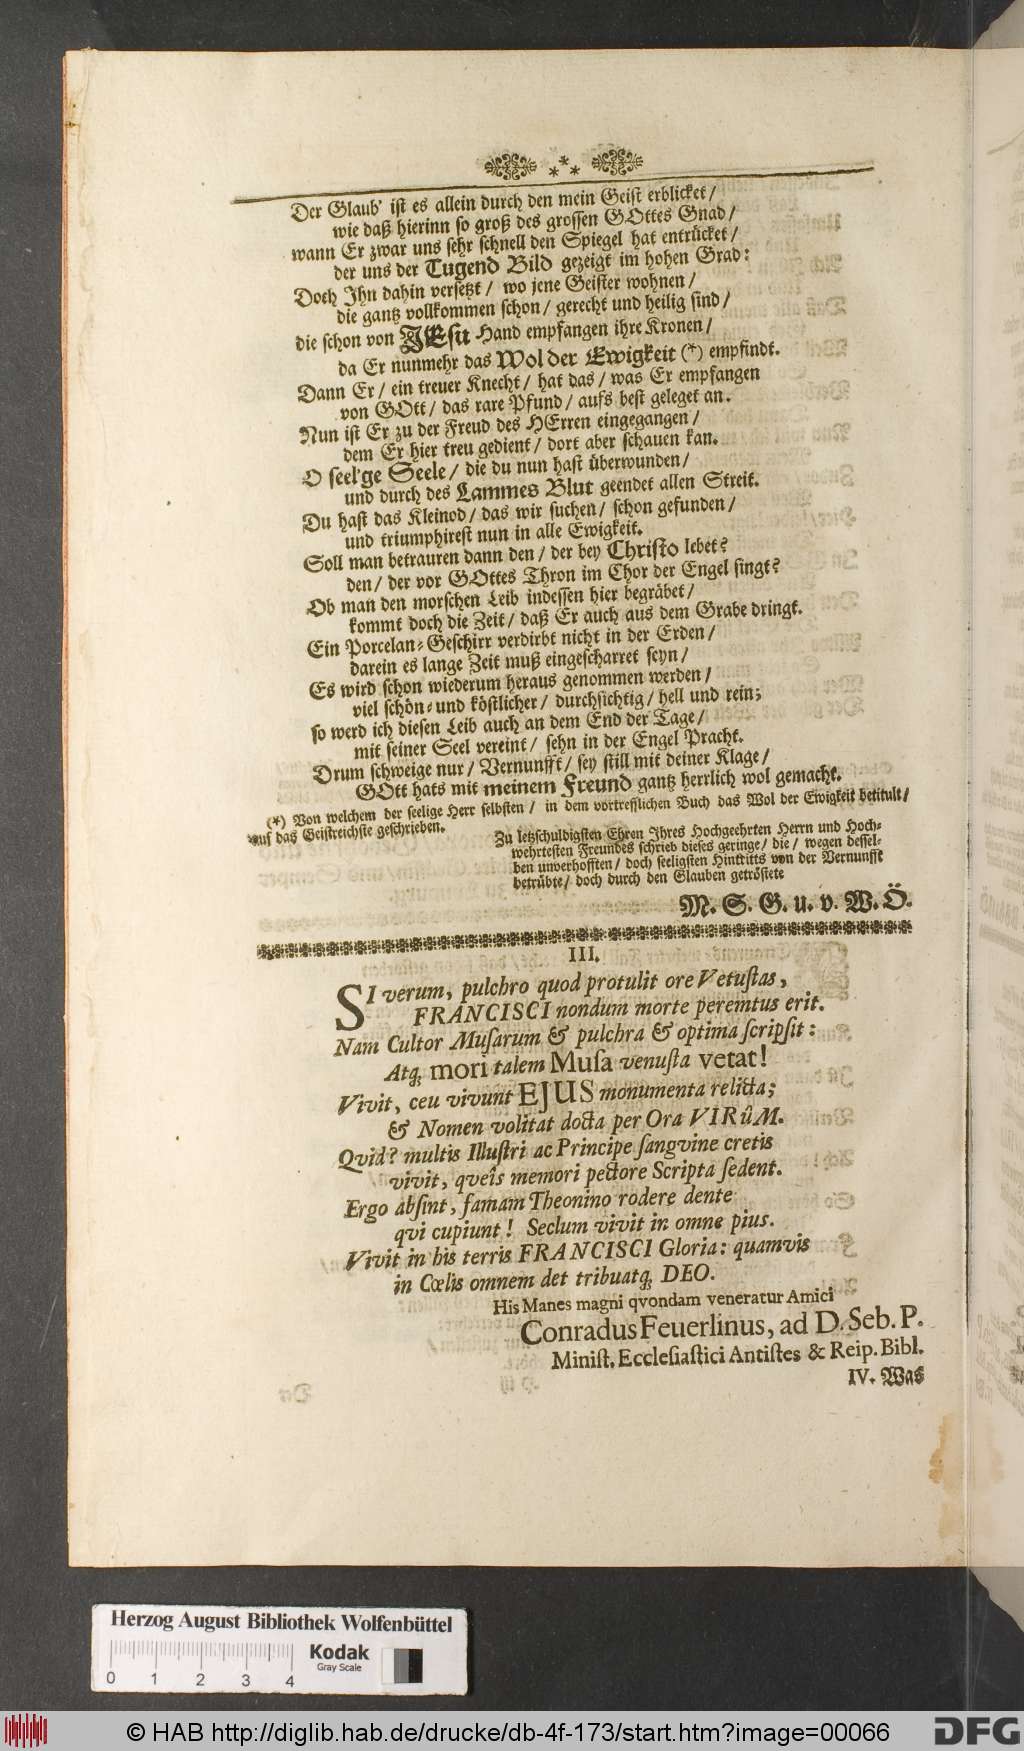 Der Glaub' ist es allein durch den mein Geist erblicket /
wie daß hierinn so groß des grossen GOttes Gnad /
wann Er zwar uns sehr schnell den Spiegel hat entrücket /
der uns der Tugend Bild gezeigt im hohen Grad:
Doch Ihn dahin versetzt / wo jene Geister wohnen /
die gantz vollkommen schon / gerecht und heilig sind /
die schon von JEsu Hand empfangen ihre Kronen /
da Er nunmehr das Wol der Ewigkeit (*) empfindt.
Dann Er / ein treuer Knecht / hat das / was Er empfangen
von GOtt / das rare Pfund / aufs best geleget an.
Nun ist Er zu der Freud des HErren eingegangen /
dem Er hier treu gedient / dort aber schauen kan.
O seel'ge Seele / die du nun hast überwunden /
und durch des Lammes Blut geendet allen Streit.
Du hast das Kleinod / das wir suchen / schon gefunden /
und triumphirest nun in alle Ewigkeit.
Soll man betrauren dann den / der bey Christo lebet?
den / der vor GOttes Thron im Chor der Engel singt?
Ob man den morschen Leib indessen hier begräbet /
kommt doch die Zeit / daß Er auch aus dem Grabe dringt.
Ein Porcelan-Geschirr verdirbt nicht in der Erden /
darein es lange Zeit muß eingescharret seyn /
Es wird schon wiederum heraus genommen werden /
viel schön- und köstlicher / durchsichtig / hell und rein;
so werd ich diesen Leib auch an dem End der Tage /
mit seiner Seel vereint / sehn in der Engel Pracht.
Drum schweige nur / Vernunfft / sey still mit deiner Klage /
GOtt hats mit meinem Freund gantz herrlich wol gemacht.
(*) Von welchem der seelige Herr selbsten / in dem vortrefflichen Buch das Wol der Ewigkeit betitult /
auf das Geistreichste geschrieben.
Zu letzschuldigsten Ehren Ihres Hochgeehrten Herrn und Hoch-
wehrtesten Freundes schrieb dieses geringe / die / wegen dessel-
ben unverhofften / doch seeligsten Hintritts von der Vernunfft
betrübte / doch durch den Glauben getröstete
M. S. G. u. v. W. Ö.
III.
SI verum, pulchro quod protulit ore Vetustas,
FRANCISCI nondum morte peremtus erit.
Nam Cultor Musarum & pulchra & optima scripsit:
Atq; mori talem Musa venusta vetat!
Vivit, ceu vivunt EJUS monumenta relicta;
& Nomen volitat docta per Ora VIRûM.
Qvid? multis Illustri ac Principe sangvine cretis
vivit, qveîs memori pectore Scripta sedent.
Ergo absint, famam Theonino rodere dente
qvi cupiunt! Seclum vivit in omne pius.
Vivit in his terris FRANCISCI Gloria: quamvis
in Cœlis omnem det tribuatq; DEO.
His Manes magni qvondam veneratur Amici
Conradus Feuerlinus, ad D. Seb. P.
Minist. Ecclesiastici Antistes & Reip. Bibl.
IV. Was
Herzog August Bibliothek Wolfenbüttel
Kodak
Gray Scale
0 1 2 3 4
© HAB http://diglib.hab.de/drucke/db-4f-173/start.htm?image=00066
DFG